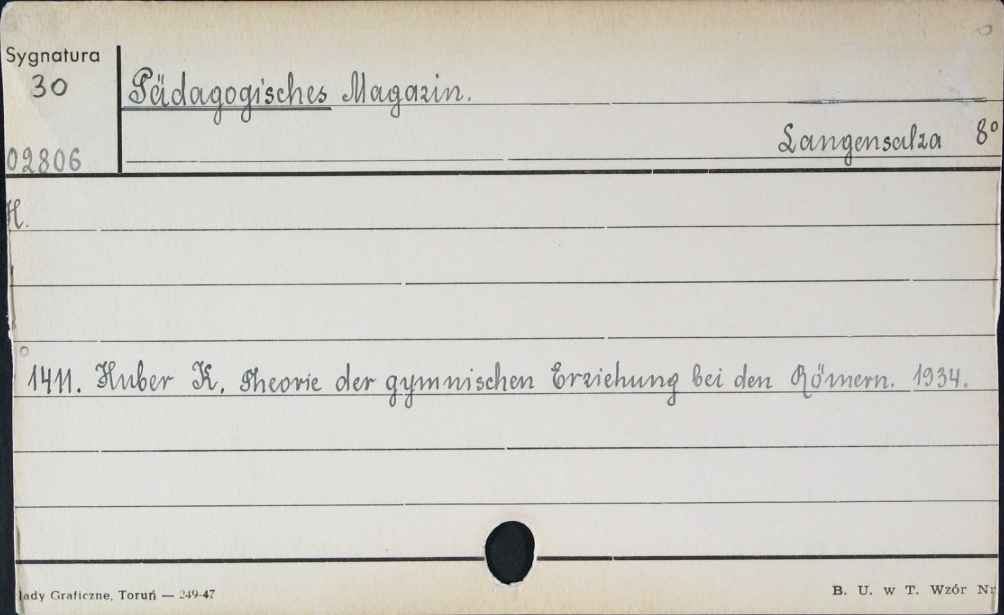 Sygnatura
30
02806
Pädagogisches Magazin.
Langensalza 8º
H.
1411. Huber K. Theorie der gymnischen Erziehung bei den Römern. 1934.
lady Graficzne, Toruń — 249-47
B. U. w T. Wzór Nr